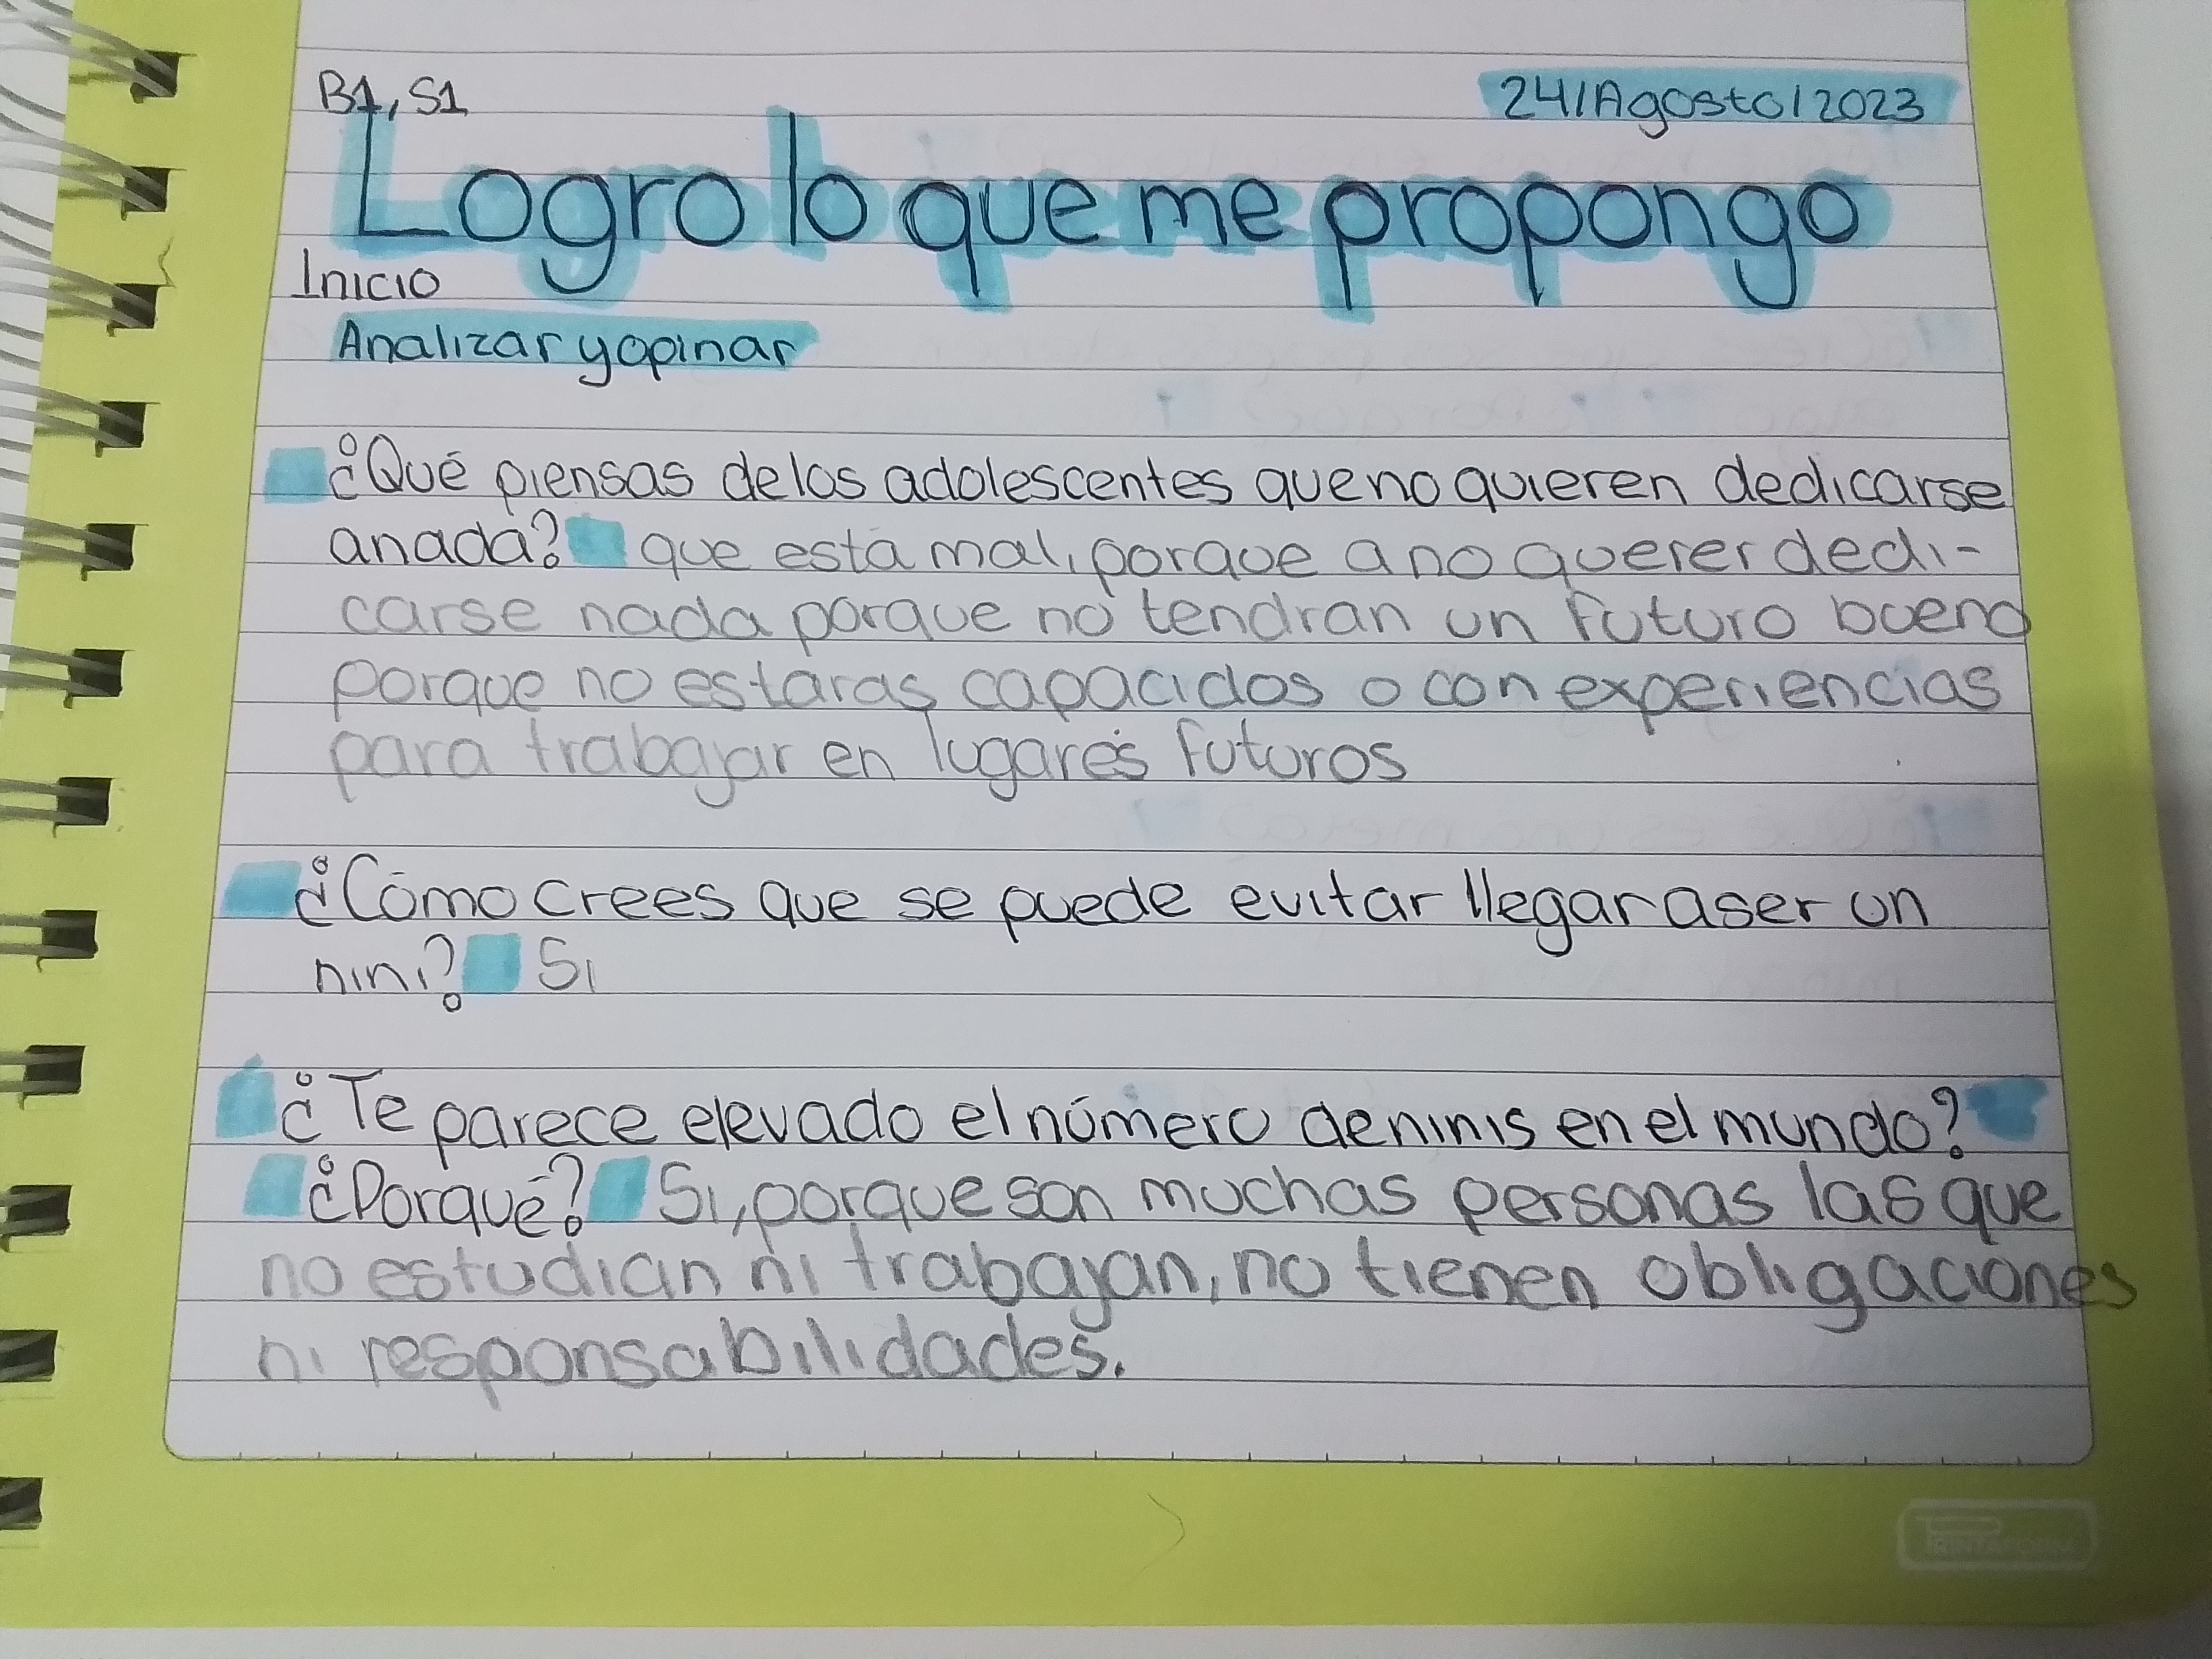 B1, S1
24/Agosto/2023
Logro lo que me propongo
Inicio
Analizar y opinar
¿Qué piensas de los adolescentes que no quieren dedicarse
a nada? que esta mal, porque a no querer dedi-
carse nada porque no tendran un futuro bueno
porque no estaras capacidos o con experiencias
para trabajar en lugares futuros
¿Cómo crees que se puede evitar llegar a ser un
nini? Si
¿Te parece elevado el número de ninis en el mundo?
¿Porqué? Si, porque son muchas personas las que
no estudian ni trabajan, no tienen obligaciones
ni responsabilidades.
PRINTAFORM